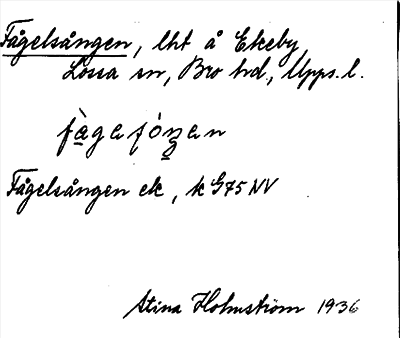 Fågelsången, lht å Ekeby
Lossa sn, Bro hd, Upps. l.
fàgafóŋan
Fågelsången ek, k G75 NV
Stina Holmström 1936